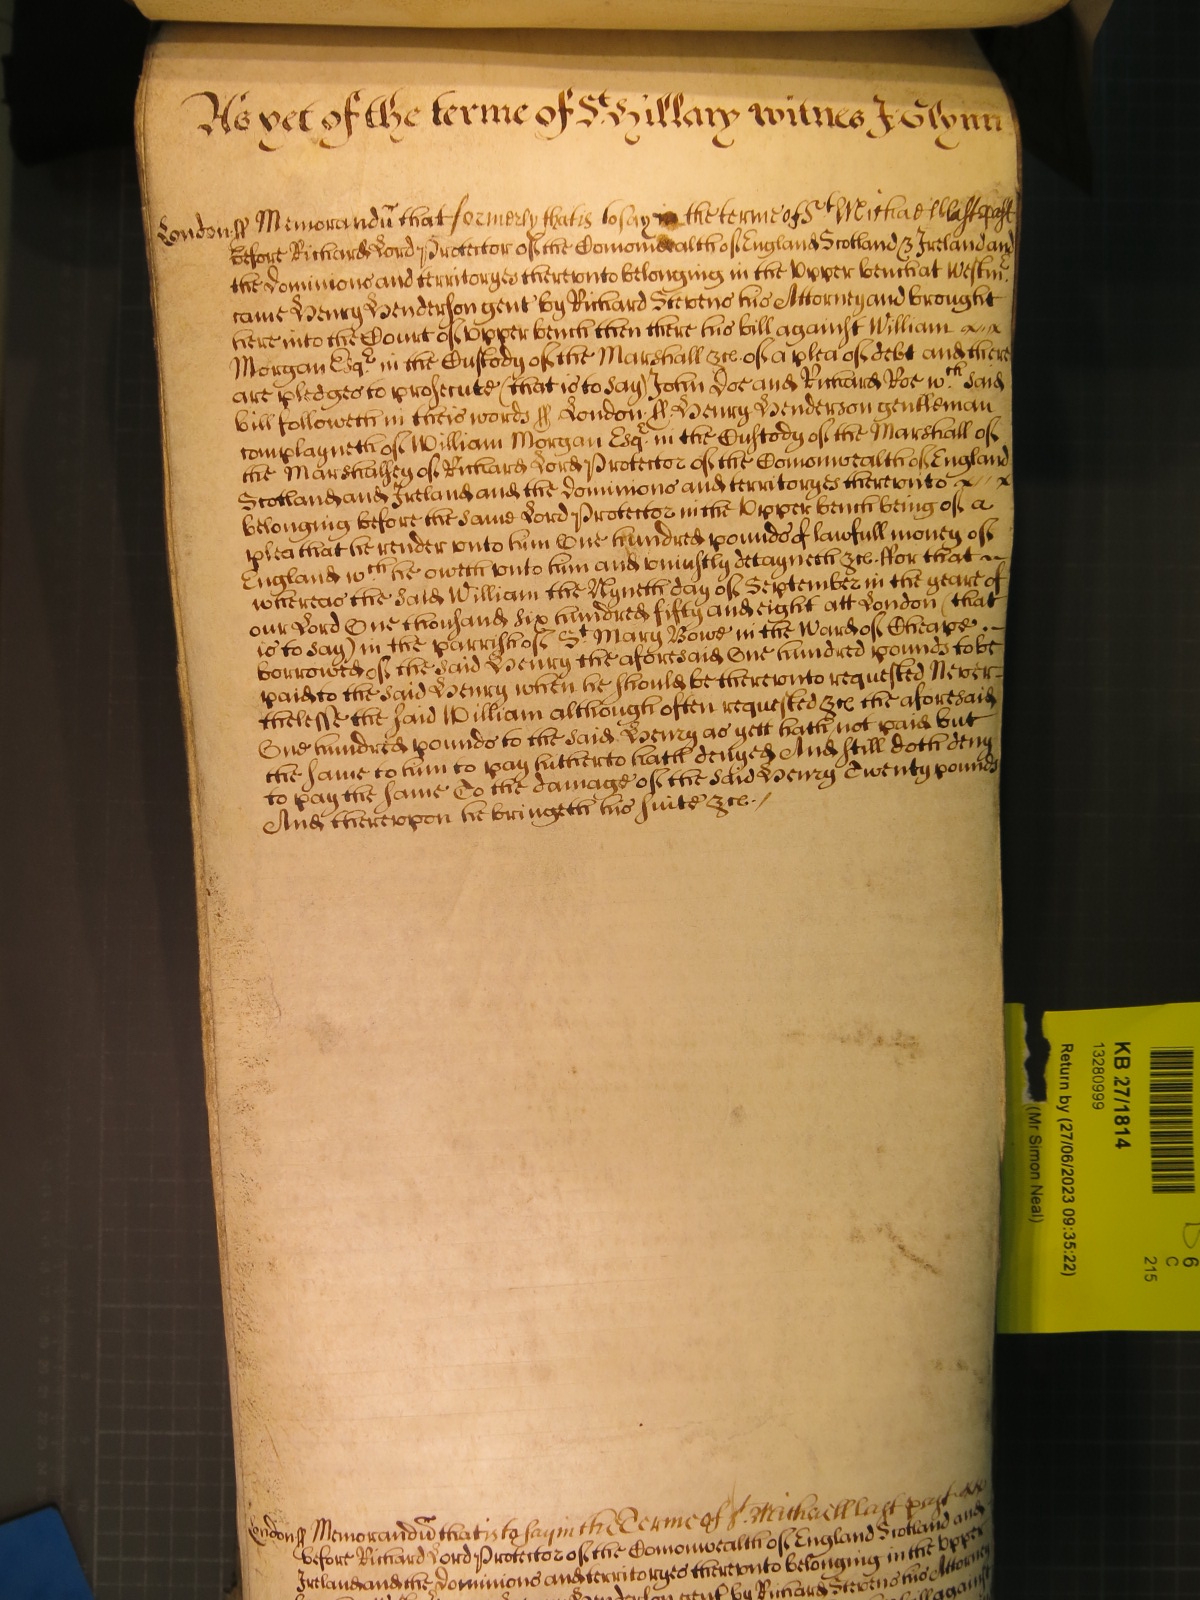 As yet of the terme of St Hillary witnes J Glynn
London ss Memorandũ that formerly that is to say in the terme of St Michaell last past
before Richard Lord Protector of the Comonwealth of England Scotland & Ireland and
the Dominions and territoryes therevnto belonging in the Vpper bench at Westmr
came Henry Henderson gent by Richard Stevens his Attorney and brought
here into the Court of Vpper bench then there his bill against William
Morgan Esqr in the Custody of the Marshall &c. of a plea of debt and there
are pledges to prosecute (that is to say) John Doe and Richard Roe wch said
bill followeth in theis words ss London ss Henry Henderson gentleman
complayneth of William Morgan Esqr in the Custody of the Marshall of
the Marshalsey of Richard Lord Protector of the Comonwealth of England
Scotland and Ireland and the Dominions and territoryes therevnto
belonging before the same Lord Protector in the Vpper bench being of a
plea that he render vnto him One hundred pounds of lawfull money of
England wch he oweth vnto him and vniustly detayneth &c. ffor that
whereas the said William the Nyneth day of September in the yeare of
our Lord One thousand six hundred fifty and eight att London (that
is to say) in the parrish of St Mary Bowe in the Ward of Cheape
borrowed of the said Henry the aforesaid One hundred pounds to be
paid to the said Henry when he should be therevnto requested Never-
thelesse the said William although often requested &c the aforesaid
One hundred pounds to the said Henry as yett hath not paid but
the same to him to pay hitherto hath denyed And still doth deny
to pay the same To the damage of the said Henry Twenty pounds
And therevpon he bringeth his suite &c.
London ss Memorandũ that is to say in the Terme of St. Michaell last past
before Richard Lord Protector of the Comonwealth of England Scotland and
Ireland and the Dominions and territoryes therevnto belonging in the Vpper
Henderson gent by Richard Stevens his Attorney
against
KB 27/1814
13280999
Return by (27/06/2023 09:35:22)
(Mr Simon Neal)
6
C
215